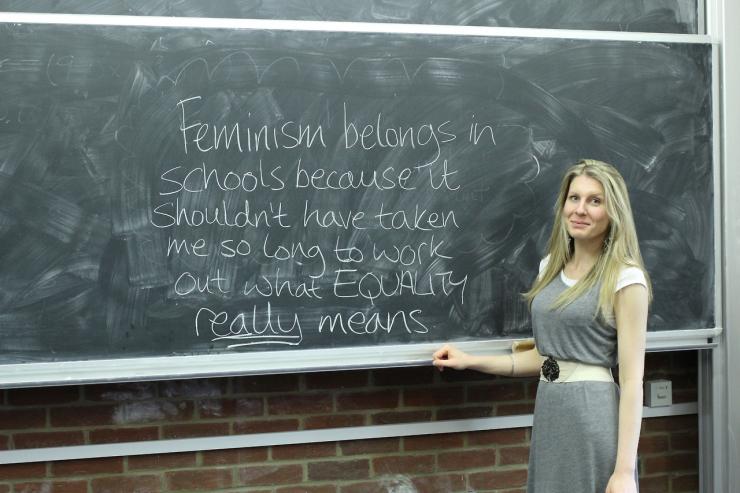 Feminism belongs in
schools because it
shouldn't have taken
me so long to work
out what EQUALITY
really means